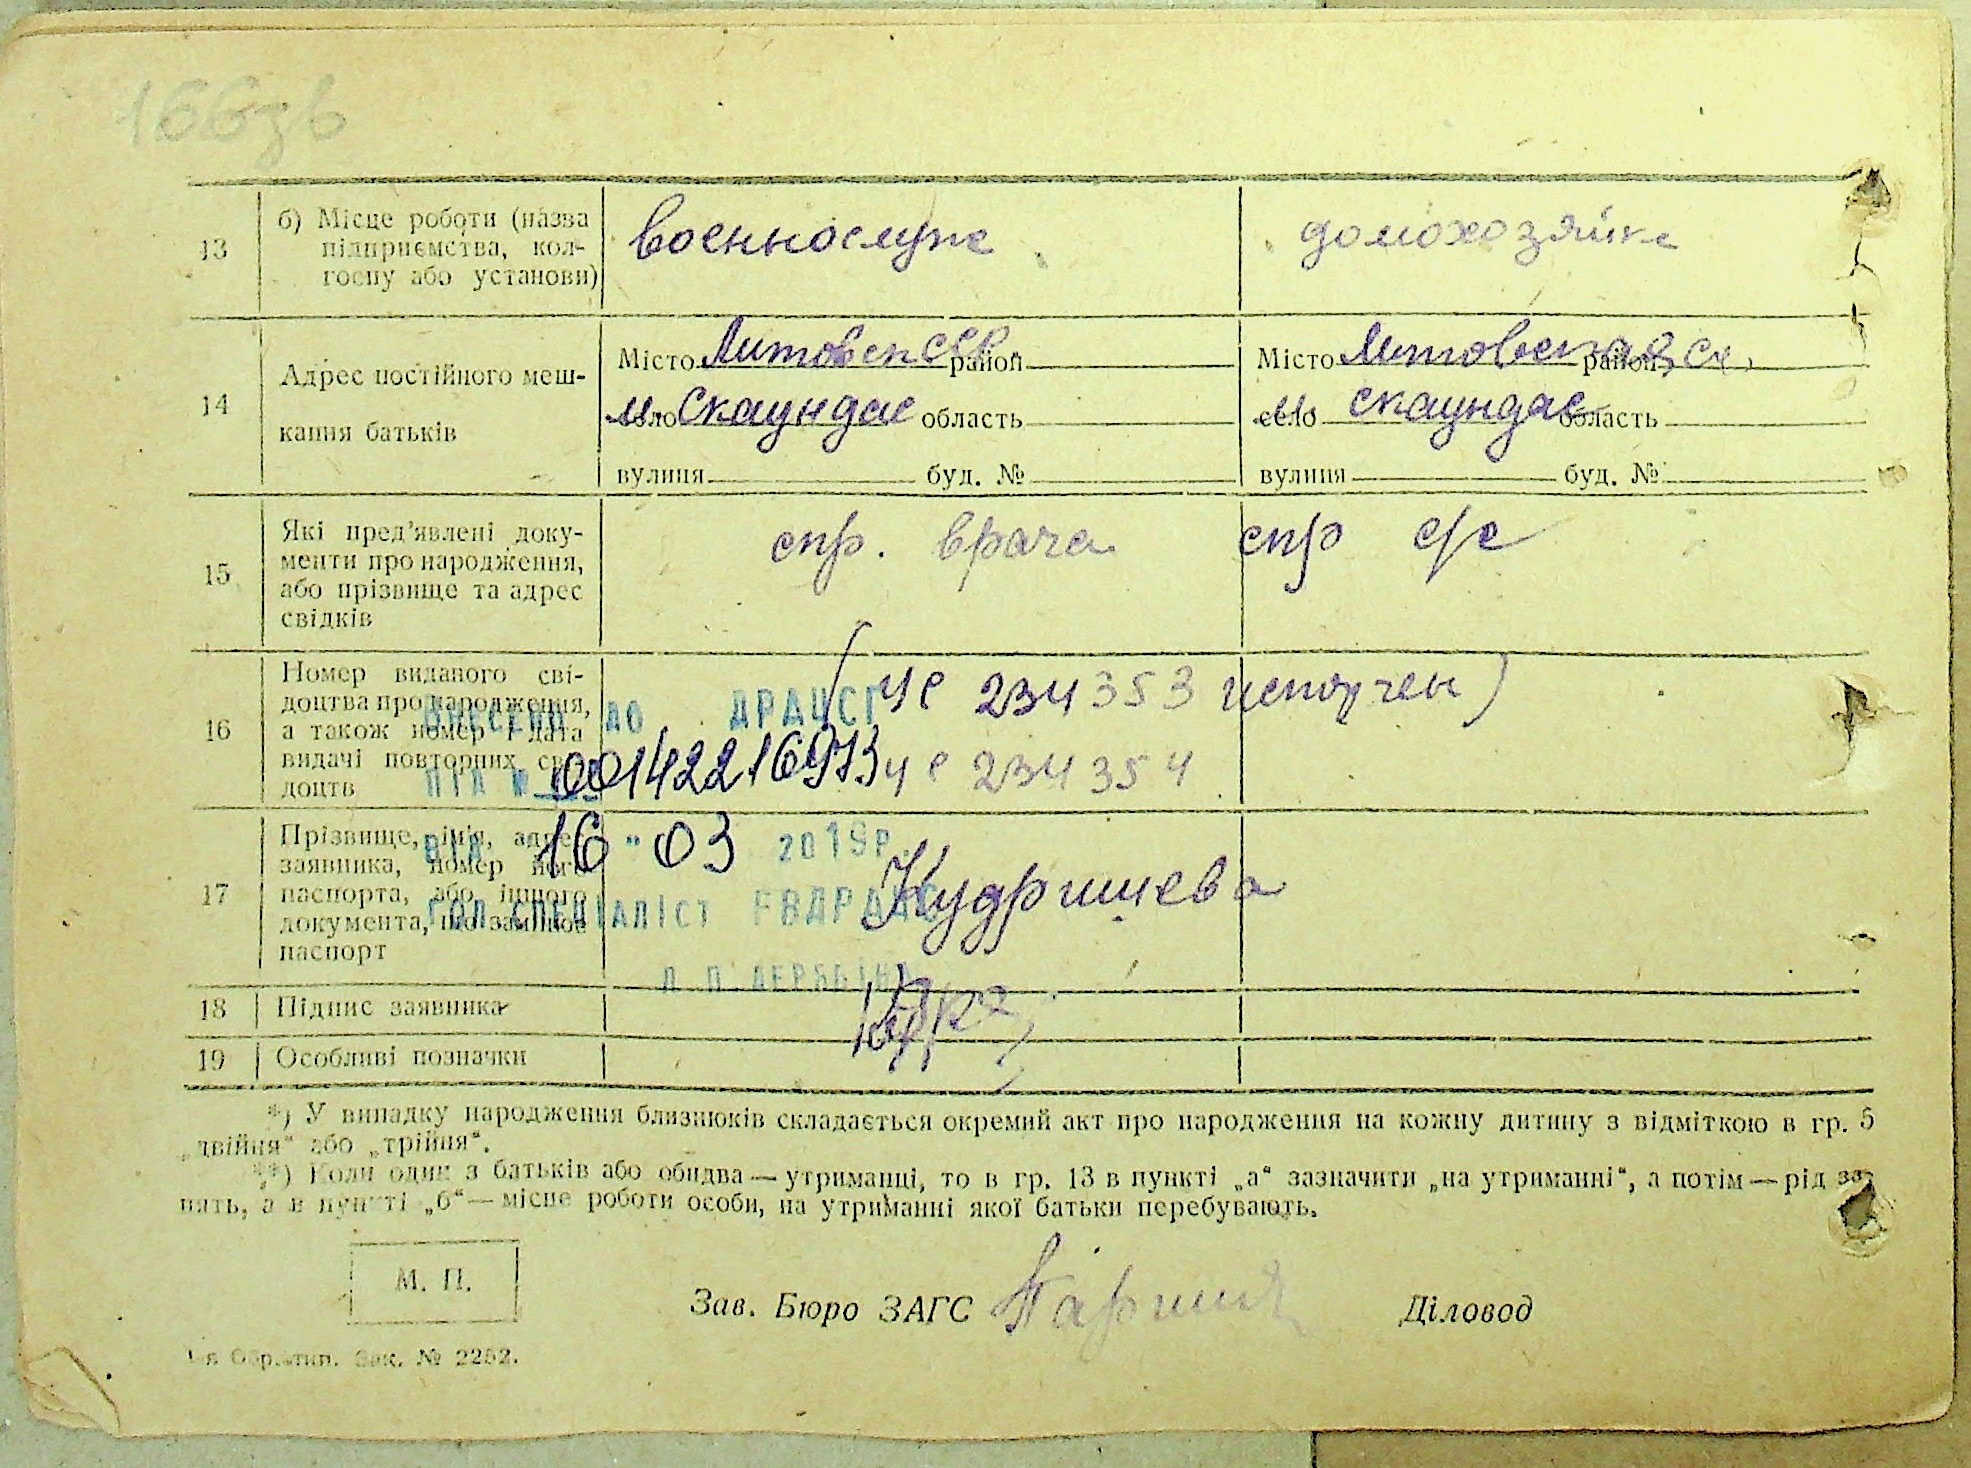 166зв
13
б) Місце роботи (назва
підприємства, кол-
госпу або установи)
военнослуж
домохозяйка
14
Адрес постійного меш-
кання батьків
Місто Литовск ССР район
м. село Скаундас область
вулиця буд. №
Місто Литовская район сср
м. село Скаундас область
вулиця буд. №
15
Які пред'явлені доку-
менти про народження,
або прізвище та адрес
свідків
спр. врача
спр с/с
16
Номер виданого сві-
доцтва про народження,
а також номер і дата
видачі повторних сві-
доцтв
(ЧС 234353 испорчен)
ЧС 234354
ВНЕСЕНО ДО ДРАЦСГ
ПІА № 00142216973
ВІД 16 " 03 2019р.
ГОЛ.СПЕЦІАЛІСТ
17
Прізвище, імя, адрес
заявника, номер його
паспорта, або іншого
документа, що замінює
паспорт
Кудришева
18
Підпис заявника
19
Особливі позначки
*) У випадку народження близнюків складається окремий акт про народження на кожну дитину з відміткою в гр. 5
„двійня“ або „трійня“.
**) Коли один з батьків або обидва — утриманці, то в гр. 13 в пункті „а“ зазначити „на утриманні“, а потім — рід за-
нять, а в пункті „б“ — місце роботи особи, на утриманні якої батьки перебувають.
М. П.
Зав. Бюро ЗАГС
Діловод
Зак. № 2252.